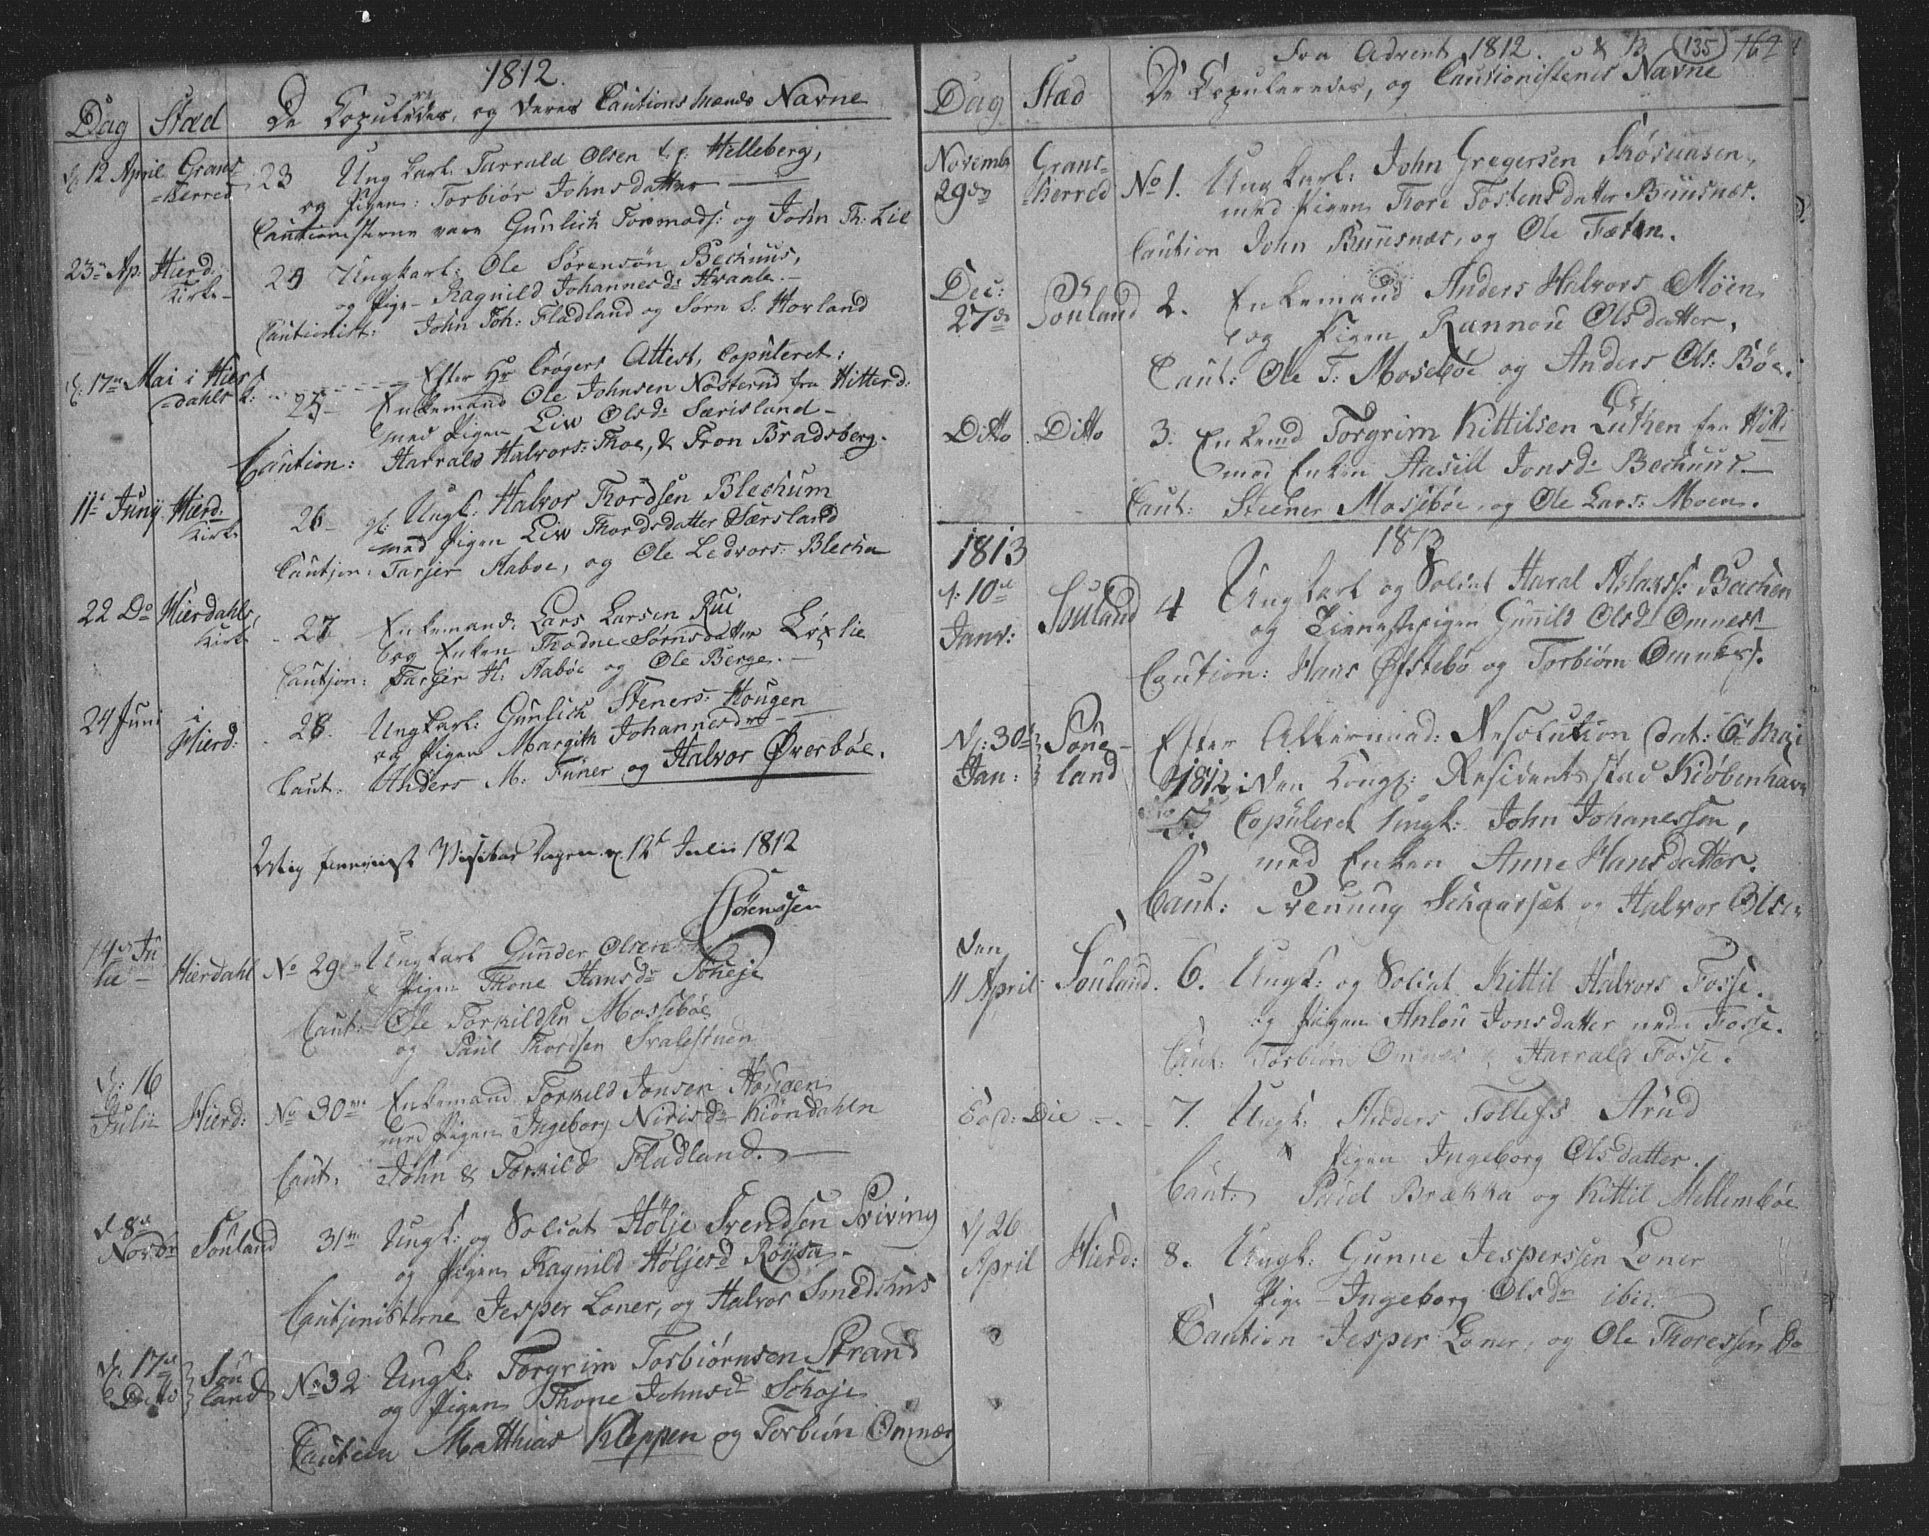 1812.
Dag Stæd De Copulerede, og deres Cautions Mænds Navne
d: 12 April Grans- 23 Ung karl: Tarrald Olsen Helleberg,
=herred og Pigen: Torbiør Johnsdatter
Cautionisterne vare Gunlich Tormods: og John Th: Lie
23de Ap. Hierd: 24 Ungkarl: Ole Sørensøn Bechuus,
Kirke- og Pige- Ragnild Johannesd: Hvaale.-
Cautionist: John Joh: Fladland og Sørn S: Hovland
d: 17de Mai i Hier Efter Hr Crøgers Attest, Copuleret:
=dahls k: 25- Enkemand Ole Johnsen Nosterud fra Hitterd:
med Pigen Liw Olsd: Særisland-
Caution: Harrald Halvors: Thoe, & Tron Bradsberg.
11te Juny Hierd: 26- Ungk: Halvor Thordsen Blechum
Kirke med Pigen Liw Thordsdatter Særsland
Cautjon: Tarjer Aaboe, og Ole Ledvors: Blechu
22 Do Hierdahls, 27 Enkemand: Lars Larsen Rui
Kirke og Enken Thodne Sørnsdatter Løxlie
Cautjon: Tarjer H: Aabøe og Ole Berge.-
24 Juni i 28. Ungkarl: Gunlich Steners: Hougen
Hierd: og Pigen Margith Johannesdr
Caut. Anders M: Funer og Halvor Øverbøe.
Visitas Dagen 12te Julii 1812
Sørenssen
14de Ju
lii - Hierdahl No 29 Ungkarl Gunder Olsen
& Pigen Thone Hansdr
Caut: Ole Torkildsen Mossebøe
og Paul Thordsen Svalestuen
d: 16
Julii Hierd: No 30 Enkemand Torkild Jonsen Hougen
med Pigen Ingeborg Nirisd: Kiøndahln
Caut. John & Torkild Fladland.
d 8de
Novbr Souland 31 Ungk: og Soldat Hølje Svendsen Qviving
og Pigen Ragnild Høljesd Røysa.
Cautjonisterne Jesper Loner, og Halvor Smedshus
d: 17de Sou No 32 Ungk: Torgrim Torbiørnsen Strand
Ditto land og Pigen Thone Johnsd Schoje
Caution Matthias Kleppen og Torbiøn Omnæs
Fra Advent 1812. 135 162
Dag Stæd De Copuleredes, og Cautionistenes Navne
Novembr Grans- No 1. Ungkarl: John Gregersen
29de =herred med Pigen Thore Tostensdatter Buusnæs.
Caution John Buusnæs, og Ole
Dec: 2. Enkemand Anders Halvors Møen
27de Souland og Pigen Rannou Olsdatter,
Caut: Ole T: Mosebøe og Anders Ols: Bøe.
Ditto Ditto 3. Enkemd Torgrim Kittilsen Luthen fra Hitt:
med Enken Aasill Jonsd: Bechuus
Caut: Stener Mosebøe, og Ole Lars: Moen.
1813 1813
d: 10de Souland 4 Ungkarl og Soldat Haral Aslakss: Bachen
Janv: og Tienestepigen Gunnild Olsd Omness
Caution: Hans Øfstebø og Torbiørn Omness.
d: 30te Sou- Efter Allernaad: Resolution dat: 6te Maji
Jan: land 1812 den Kongl: Residents stad Kiøbenhavn
5. Copuleret Ungk: John Johanessen,
med Enken Anne Hansdatter.
Caut: Svenung Schaarsæt og Halvor Olsen
den
11 April Souland. 6. Ungk: og Soldat Kittil Halvors Fosse.
og Pigen Anlou Jonsdatter nedr Fosse.
Caut: Torbiørn Omnæs & Harrald Fosse.
Eod: Die - - - 7. Ungk: Anders Tollefs Arud
& Pigen Ingeborg Olsdatter.
Caut: Poul Brækka og Kittil Mellembøe
d 26
April Hierd: 8. Ungk: Gunne Jesperssen Loner
Pige Ingeborg Olsdr ibid.
Caution Jesper Loner, og Ole Thoressen Do